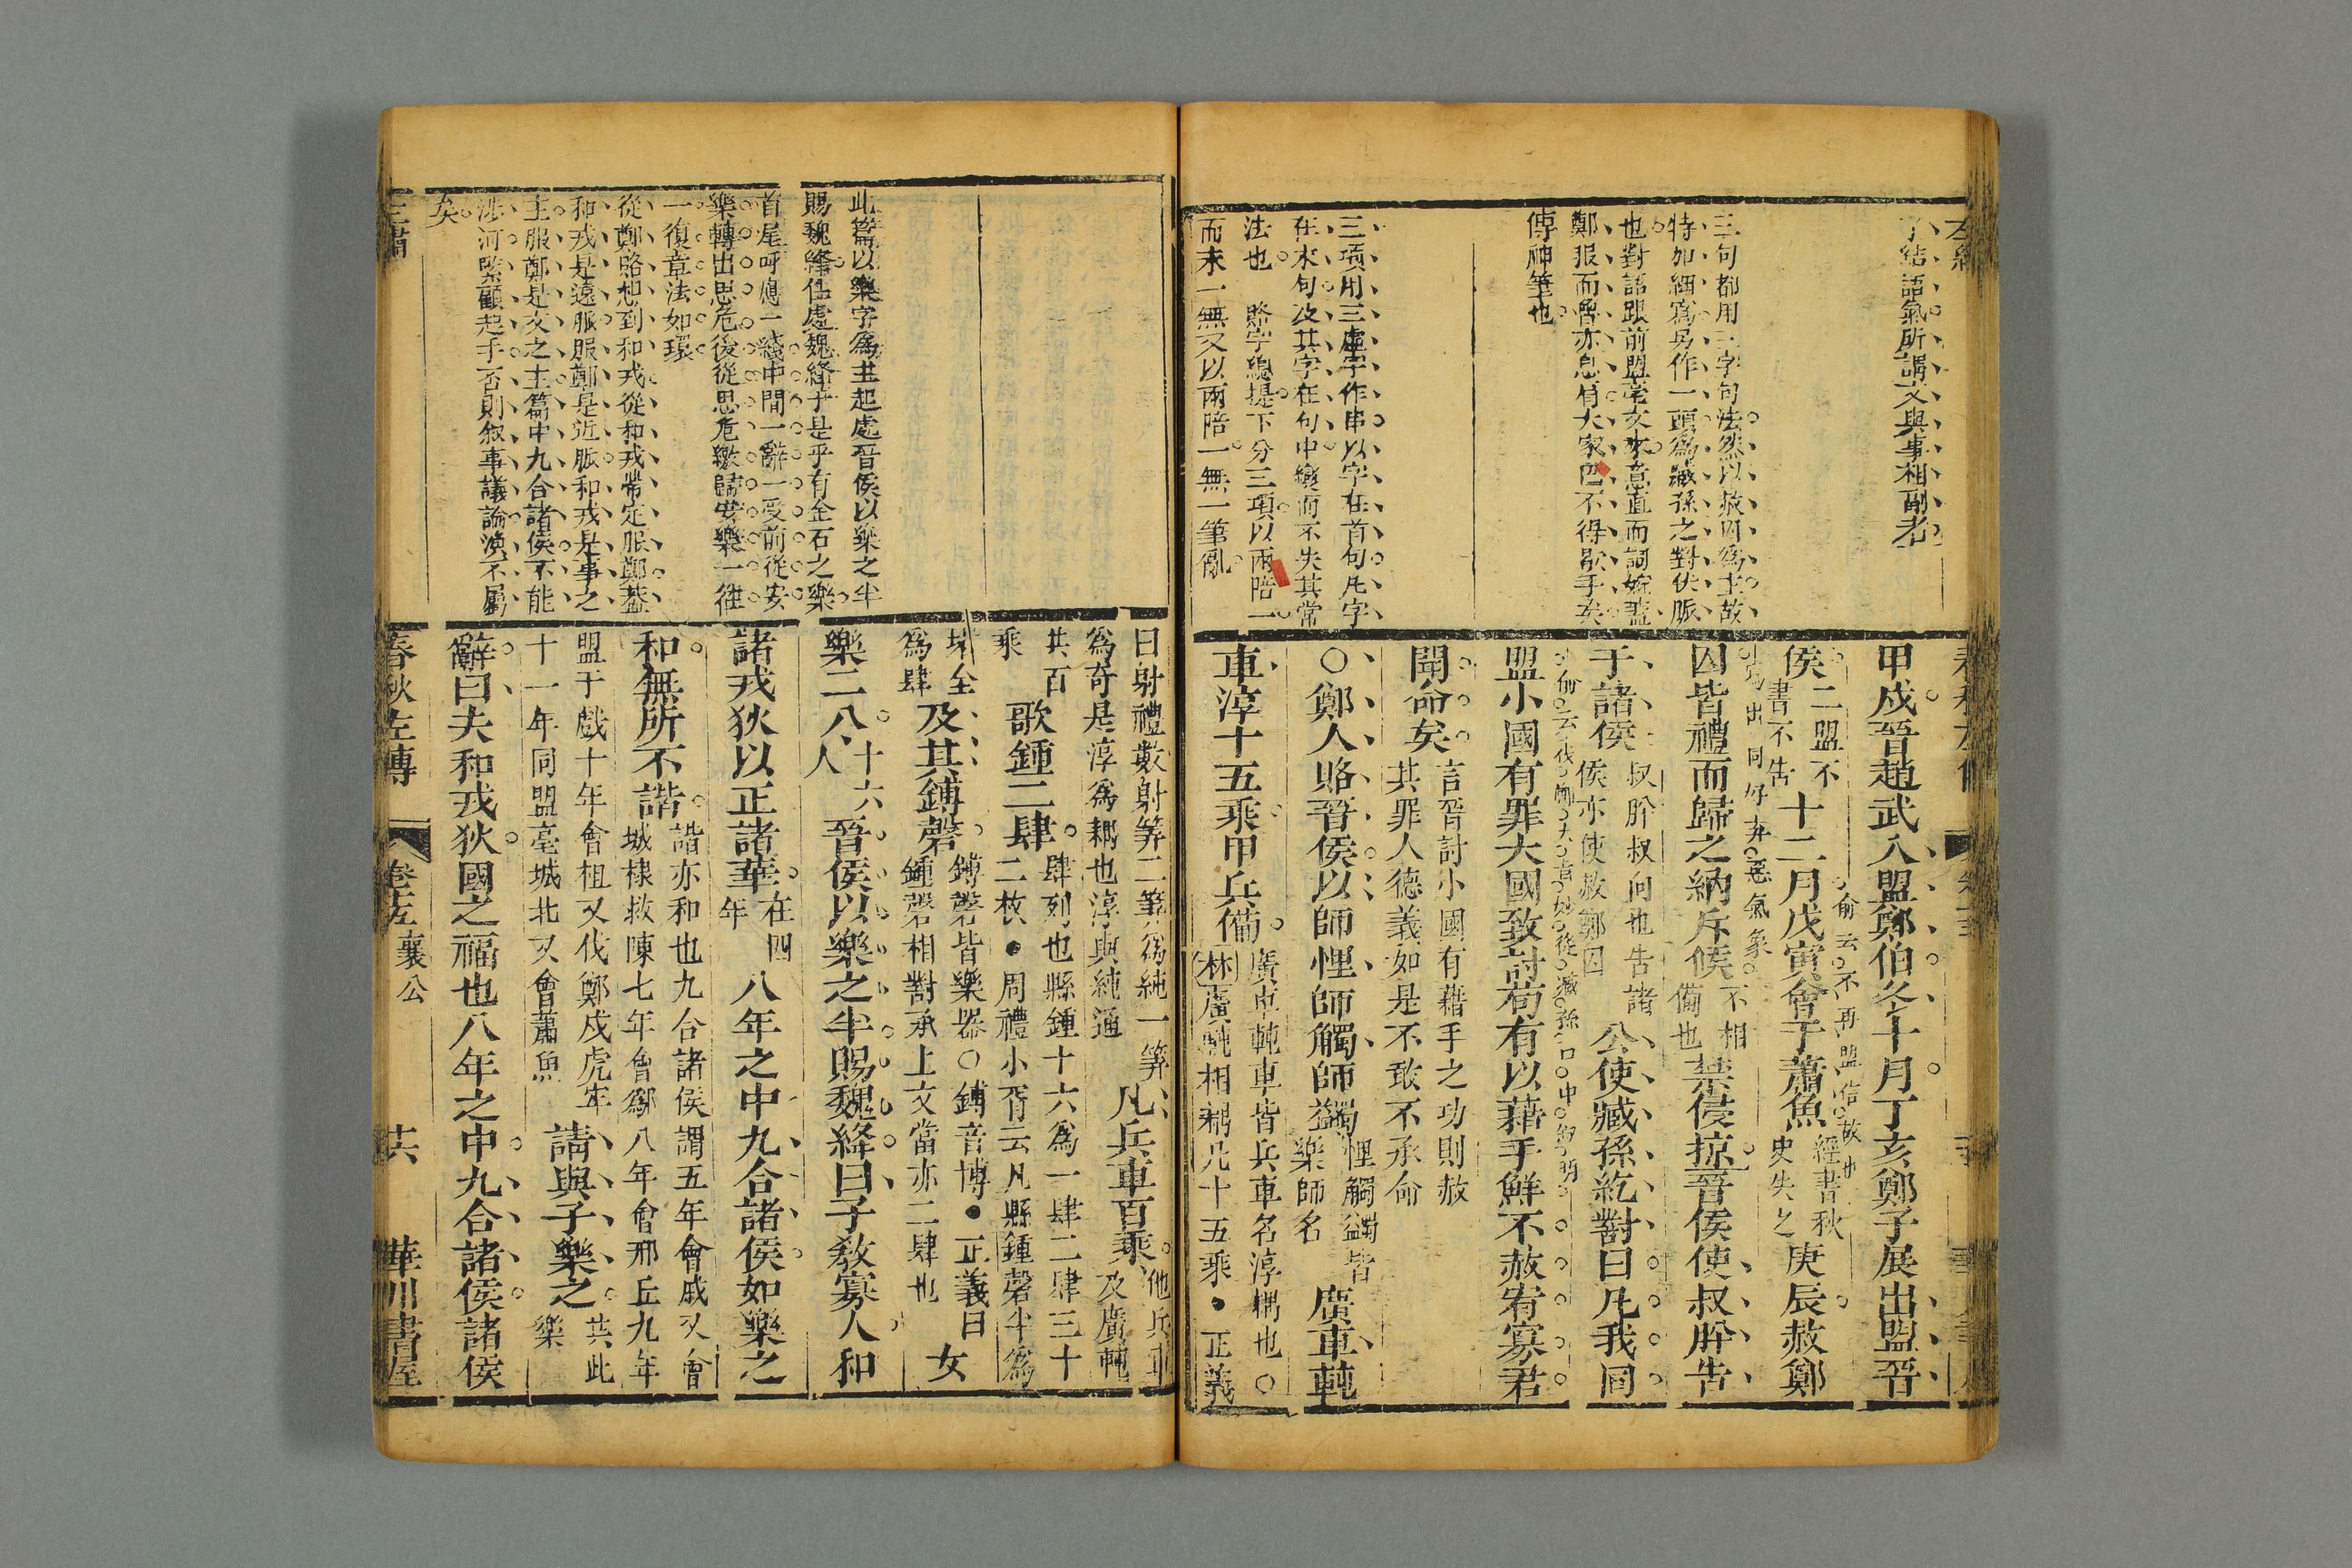 了結語氣所謂文與事相副者
三句都用三字句法然以赦囚爲主故
特加細寫另作一頭爲臧孫之對伏脈
也對語跟前盟亳文來意直而詞婉盖
鄭服而魯亦息肩大家巴不得歇手矣
傳神筆也
三項用三虛字作串以字在首句凡字
在末句及其字在句中變而不失其常
法也 賂字總提下分三項以兩陪一
而末一無又以兩陪一無一筆亂
甲戍晉趙武入盟鄭伯冬十月丁亥鄭子展出盟晉
侯二盟不
書不告
十二月戊寅會于蕭魚
俞云不再盟信故也
經書秋
史失之
庚辰赦鄭
囚皆禮而歸之納斥候
不相
備也
禁侵掠晉侯使叔肸告
寫出同好弃惡氣象
于諸侯
叔肸叔向也告諸
侯亦使赦鄭囚
公使臧孫紇對曰凡我同
盟小國有罪大國致討苟有以藉手鮮不赦宥寡君
聞命矣
言晉討小國有藉手之功則赦
其罪人德義如是不敢不承命
○鄭人賂晉侯以師悝師觸師蠲
悝觸蠲皆
樂師名
廣車軘
車淳十五乘甲兵備
廣車軘車皆兵車名淳耦也○
林廣軘相耦凡十五乘●正義
曰射禮數射筭二筭爲純一筭
爲奇是淳爲耦也淳與純通
凡兵車百乘
他兵車
及廣軘
共百
乘
歌鍾二肆
肆列也縣鍾十六爲一肆二肆三十
二枚●周禮小胥云凡縣鍾磬半爲
堵全
爲肆
及其鎛磬
鎛磬皆樂器○鎛音博●正義曰
鍾磬相對承上文當亦二肆也
女
樂二八
十六
人
晉侯以樂之半賜魏絳曰子敎寡人和
諸戎狄以正諸華
在四
年
八年之中九合諸侯如樂之
和無所不諧
諧亦和也九合諸侯謂五年會戚又會
城棣救陳七年會鄬八年會邢丘九年
盟于戲十年會柤又伐鄭戍虎牢
十一年同盟亳城北又會蕭魚
請與子樂之
共此
樂
辭曰夫和戎狄國之福也八年之中九合諸侯諸侯
此篇以樂字爲主起處晉侯以樂之半
賜魏絳住處魏絳于是乎有金石之樂
首尾呼應一綫中間一辭一受前從安
樂轉出思危後從思危繳歸安樂一往
一復章法如環
從鄭賂想到和戎從和戎帶定服鄭葢
和戎是遠脈服鄭是近脈和戎是事之
主服鄭是文之主篇中九合諸侯不能
涉河緊顧起手否則叙事議論渙不屬
矣
春秋左傳 卷 襄公 共 華川書屋